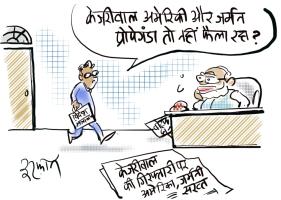 केजरीवाल अमेरिकी और जर्मन
प्रोपेगंडा तो नहीं फैला रहा?
इरफ़ान
केजरीवाल
की गिरफ्तारी पर
अमेरिका, जर्मनी
सख्त